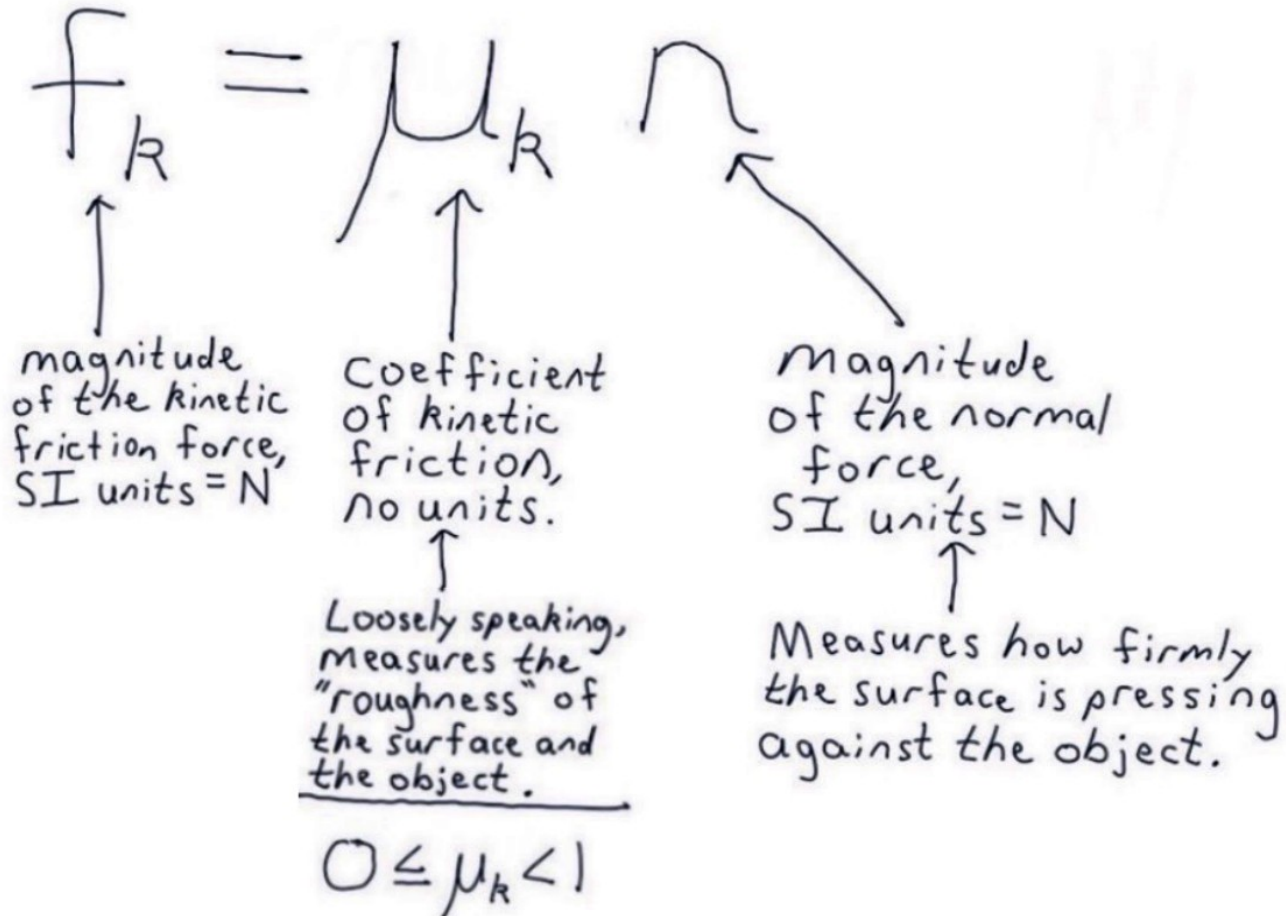 f_k = μ_k n
magnitude
of the kinetic
friction force,
SI units = N
Coefficient
of kinetic
friction,
no units.
Loosely speaking,
measures the
"roughness" of
the surface and
the object.
0 ≤ μ_k < 1
Magnitude
of the normal
force,
SI units = N
Measures how firmly
the surface is pressing
against the object.